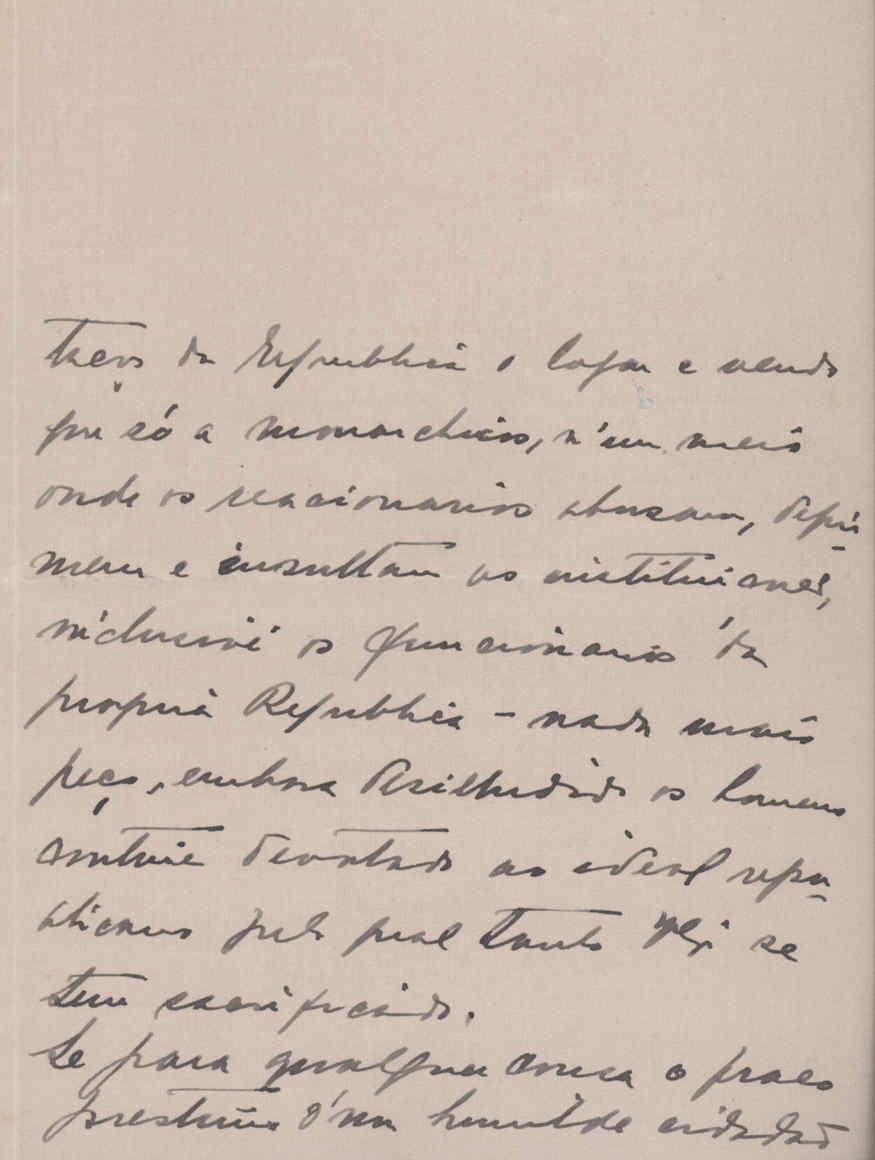 da Republica o logar e vendo
que só a monarchicos, n'um meio
onde os reacionarios abusam, depri-
mem e insultam as instituições,
inclusivé os funcionarios da
propria Republica - nada mais
peço, embora desilludido os homens
continúe devotado ao ideal repu-
blicano pelo qual tanto se
tem sacrificado.
Se para qualquer cousa o fraco
prestimo d'um humilde cidadão